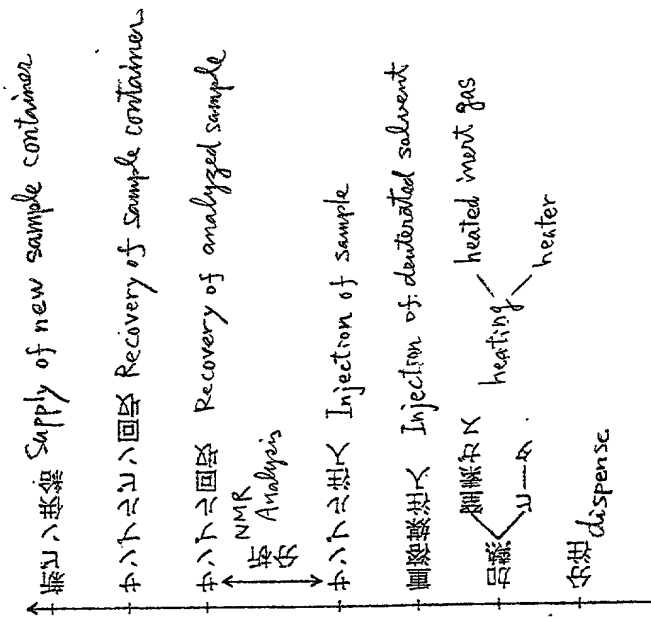 新ビン供給 Supply of new sample container
サンプルビン回収 Recovery of sample container
サンプル回収 Recovery of analyzed sample
NMR
分析 Analysis
サンプル注入 Injection of sample
重溶媒注入 Injection of deuterated solvent
窒素ガス heated inert gas
加熱 heating
ヒータ heater
分注 dispense